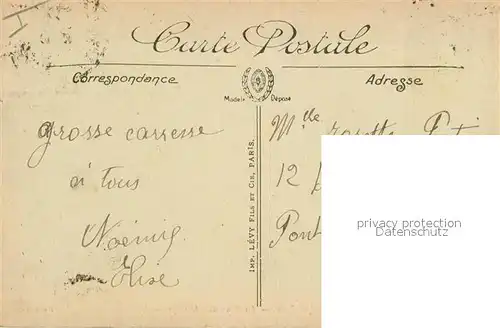 Carte Postale
Correspondance
Adresse
Modèle Déposé
grosse caresse
à tous
Noémie
Elise
IMP. LÉVY FILS ET CIE, PARIS.
Mlle
12
Pont
privacy protection
Datenschutz